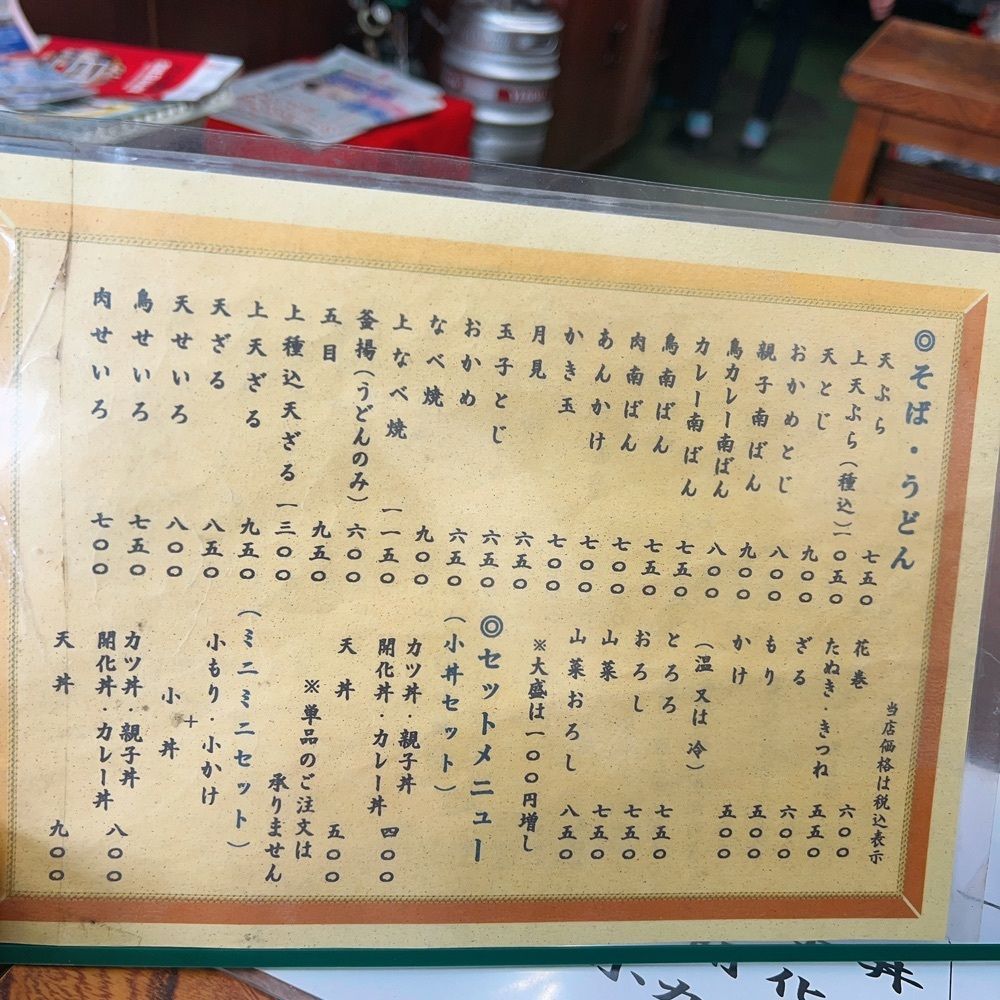 ◎そば・うどん
天ぷら 七五〇
上天ぷら(種込) 一〇五〇
天とじ 九〇〇
おかめとじ 八〇〇
親子南ばん 九〇〇
鳥カレー南ばん 八〇〇
カレー南ばん 七五〇
鳥南ばん 七五〇
肉南ばん 七〇〇
あんかけ 七〇〇
かき玉 七〇〇
月見 六五〇
玉子とじ 六五〇
おかめ 六五〇
なべ焼 九〇〇
上なべ焼 一一五〇
釜揚(うどんのみ) 六〇〇
五目 九五〇
上種込天ざる 一三〇〇
上天ざる 九五〇
天ざる 八五〇
天せいろ 八〇〇
鳥せいろ 七五〇
肉せいろ 七〇〇
当店価格は税込表示
花巻 六〇〇
たぬき・きつね 五五〇
ざる 六〇〇
もり 五〇〇
かけ 五〇〇
(温又は冷)
とろろ 七五〇
おろし 七五〇
山菜 七五〇
山菜おろし 八五〇
※大盛は一〇〇円増し
◎セットメニュー
(小丼セット)
カツ丼・親子丼
開化丼・カレー丼 四〇〇
天丼 五〇〇
※単品のご注文は
承りません
(ミニミニセット)
小もり・小かけ
+
小丼
カツ丼・親子丼
開化丼・カレー丼 八〇〇
天丼 九〇〇